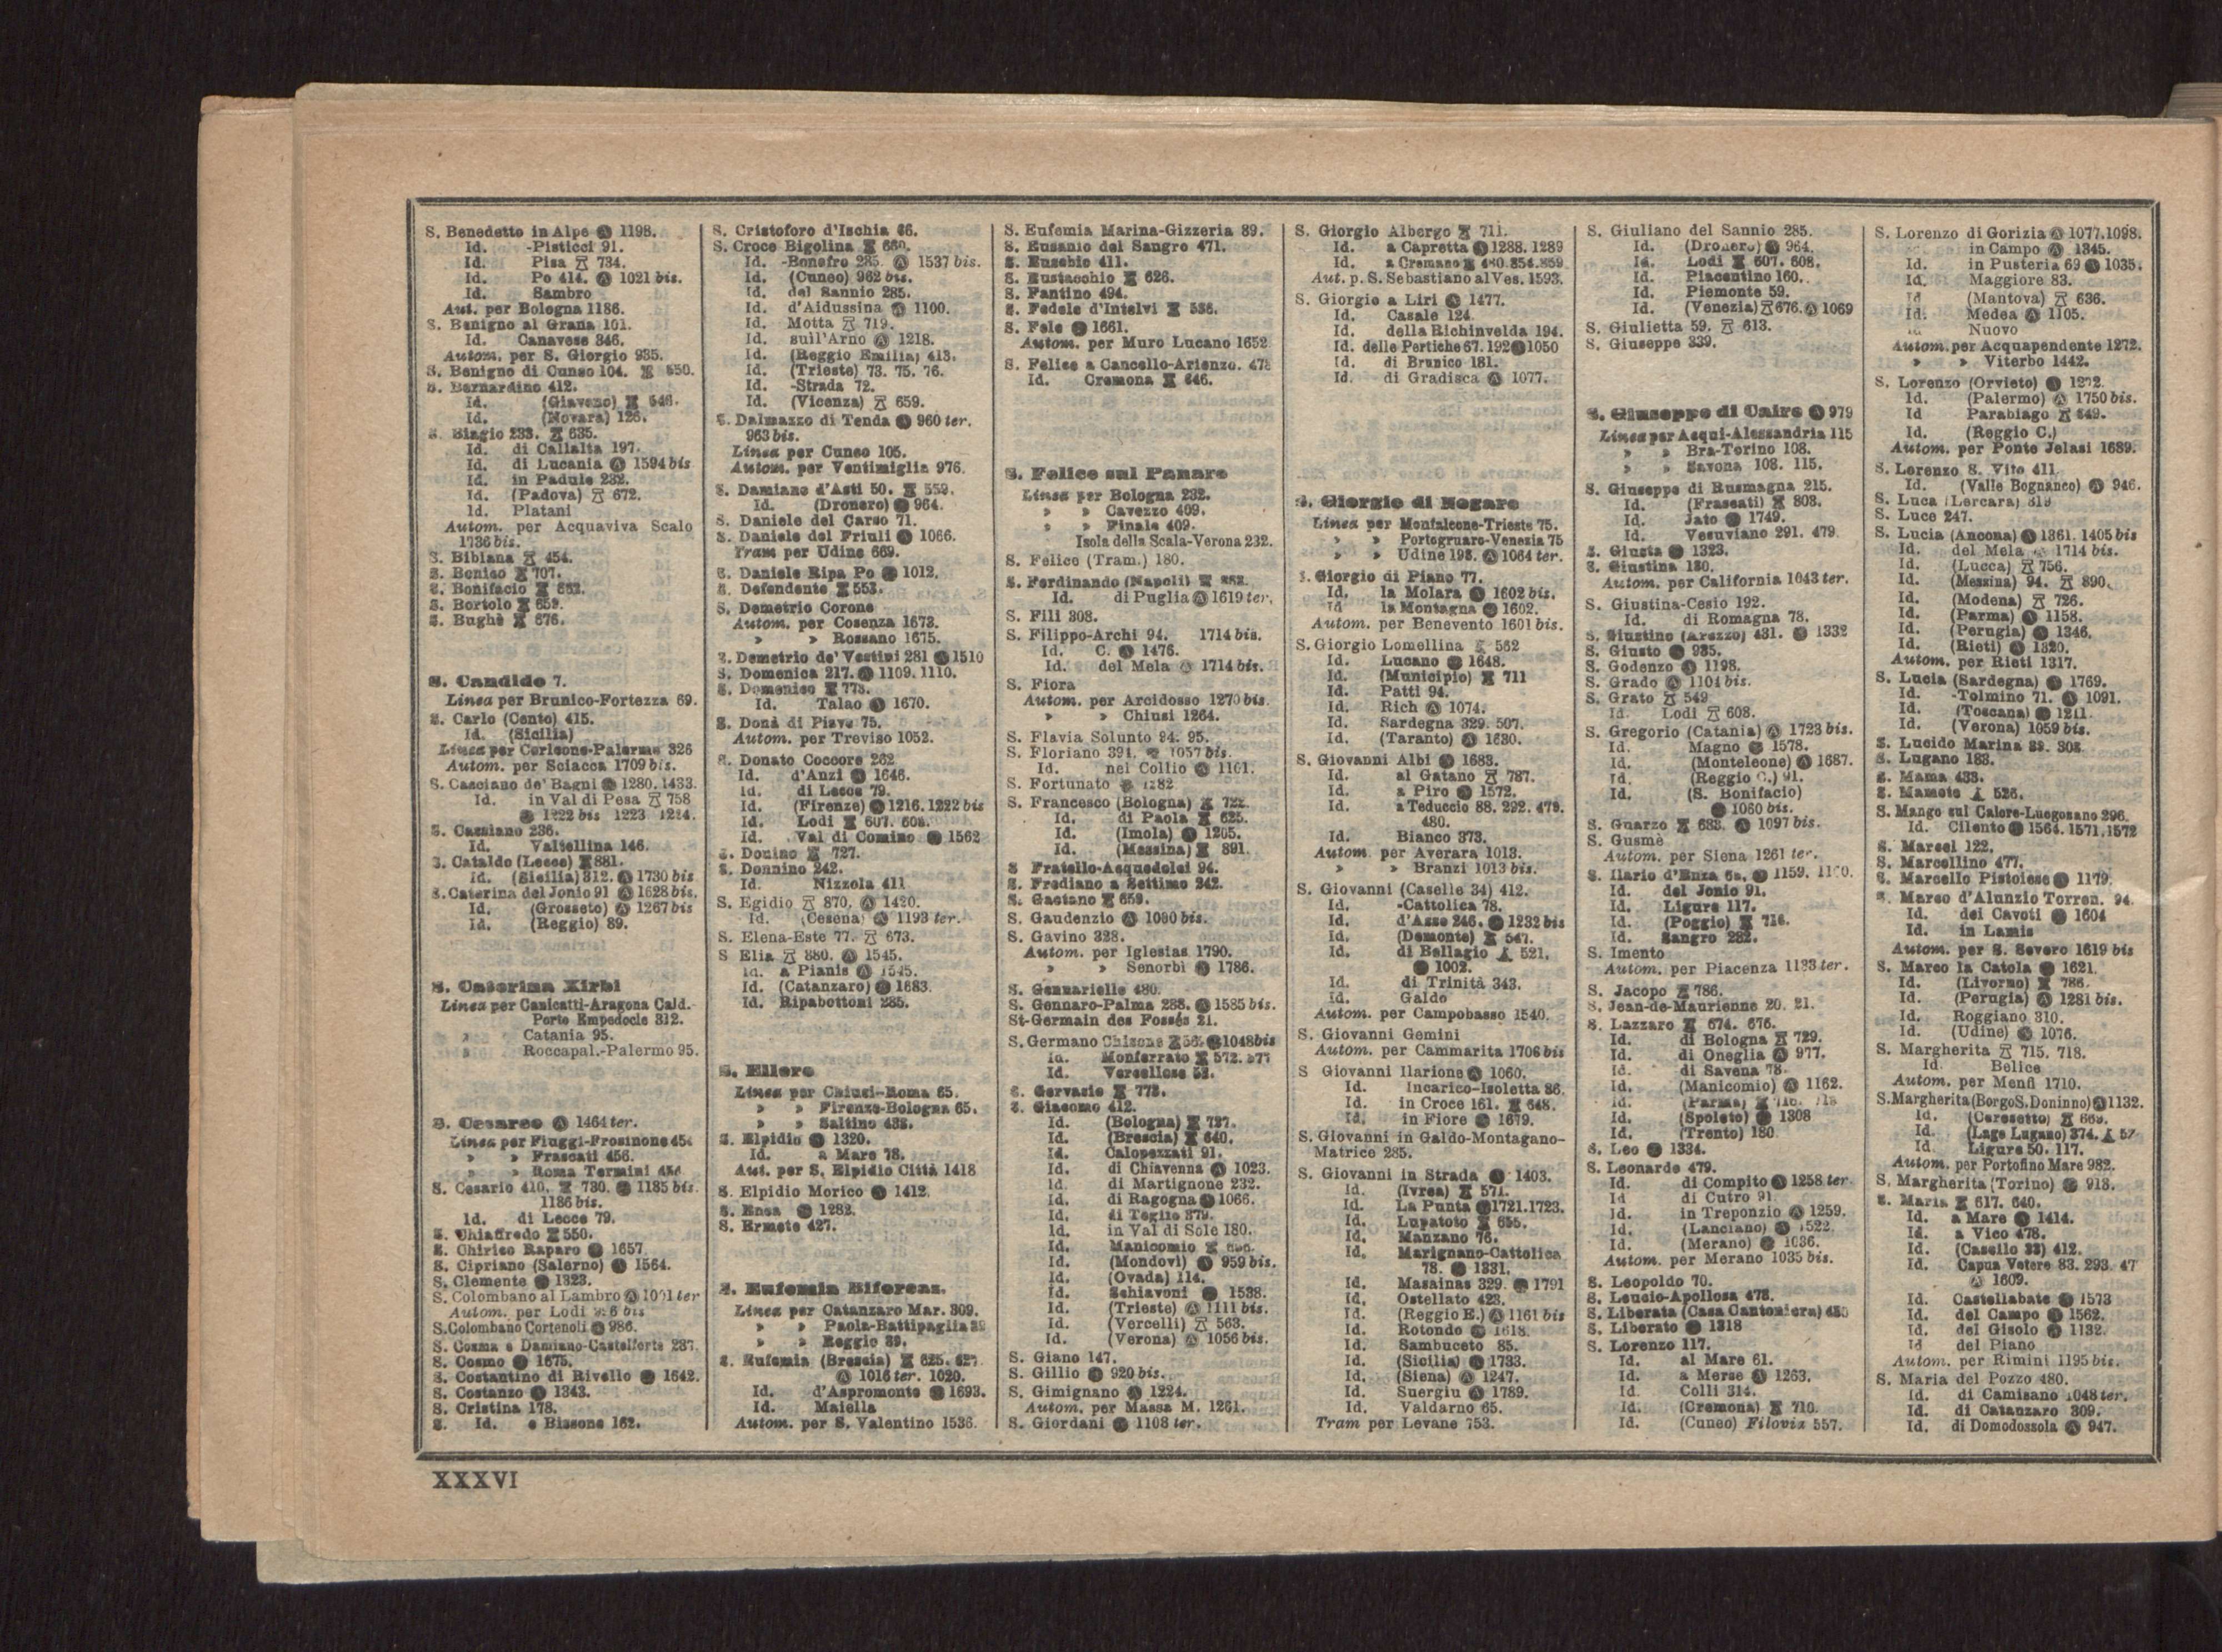 S. Benedetto in Alpe Ⓐ 1198.
Id. -Pisticci 91.
Id. Pisa 734.
Id. Po 414. Ⓐ 1021 bis.
Id. Sambro
Aut. per Bologna 1186.
S. Benigno al Grana 101.
Id. Canavese 346.
Autom. per S. Giorgio 935.
S. Benigno di Cuneo 104. 550.
S. Bernardino 412.
Id. (Giaveno) 546.
Id. (Novara) 126.
S. Biagio 233. 635.
Id. di Callalta 197.
Id. di Lucania Ⓐ 1594 bis
Id. in Padule 232.
Id. (Padova) 672.
Id. Platani
Autom. per Acquaviva Scalo
1736 bis.
S. Bibiana 454.
S. Bonico 707.
S. Bonifacio 653.
S. Bortolo 659.
S. Bughè 676.
S. Candido 7.
Linea per Brunico-Fortezza 69.
S. Carlo (Cento) 415.
Id. (Sicilia)
Linea per Corleone-Palermo 326
Autom. per Sciacca 1709 bis.
S. Casciano de' Bagni Ⓐ 1280. 1433.
Id. in Val di Pesa 758
Ⓐ 1222 bis 1223 1224.
S. Cassiano 236.
Id. Valtellina 146.
S. Cataldo (Lecce) 881.
Id. (Sicilia) 312. Ⓐ 1730 bis
S. Caterina del Jonio 91 Ⓐ 1628 bis.
Id. (Grosseto) Ⓐ 1267 bis
Id. (Reggio) 89.
S. Caterina Xirbi
Linea per Canicatti-Aragona Cald.-
Porto Empedocle 312.
» Catania 95.
» Roccapal.-Palermo 95.
S. Cesareo Ⓐ 1464 ter.
Linea per Fiuggi-Frosinone 454
» » Frascati 456.
» » Roma Termini 454
S. Cesario 410. 730. Ⓐ 1185 bis.
1186 bis.
Id. di Lecce 79.
S. Chiaffredo 550.
S. Chirico Raparo Ⓐ 1657
S. Cipriano (Salerno) Ⓐ 1564.
S. Clemente Ⓐ 1323.
S. Colombano al Lambro Ⓐ 1001 ter
Autom. per Lodi bis
S. Colombano Cortenoli Ⓐ 986.
S. Cosma e Damiano-Castelforte 287.
S. Cosmo Ⓐ 1675.
S. Costantino di Rivello Ⓐ 1642.
S. Costanzo Ⓐ 1343.
S. Cristina 178.
S. Id. e Bissone 162.
S. Cristoforo d'Ischia 66.
S. Croce Bigolina 660.
Id. -Bonefro 285. Ⓐ 1537 bis.
Id. (Cuneo) 962 bis.
Id. del Sannio 285.
Id. d'Aidussina Ⓐ 1100.
Id. Motta 719.
Id. sull'Arno Ⓐ 1218.
Id. (Reggio Emilia) 413.
Id. (Trieste) 73. 75. 76.
Id. -Strada 72.
Id. (Vicenza) 659.
S. Dalmazzo di Tenda Ⓐ 960 ter.
963 bis.
Linea per Cuneo 105.
Autom. per Ventimiglia 976.
S. Damiano d'Asti 50. 559.
Id. (Dronero) Ⓐ 964.
S. Daniele del Carso 71.
S. Daniele del Friuli Ⓐ 1066.
Tram per Udine 669.
S. Daniele Ripa Po Ⓐ 1012.
S. Defendente 553.
S. Demetrio Corone
Autom. per Cosenza 1673.
» » Rossano 1675.
S. Demetrio de' Vestini 281 Ⓐ 1510
S. Domenica 217. Ⓐ 1109. 1110.
S. Domenico 773.
Id. Talao Ⓐ 1670.
S. Donà di Piave 75.
Autom. per Treviso 1052.
S. Donato Coccore 262
Id. d'Anzi Ⓐ 1646.
Id. di Lecce 79.
Id. (Firenze) Ⓐ 1216. 1222 bis
Id. Lodi 607. 608.
Id. Val di Comino Ⓐ 1562
S. Donino 727.
S. Donnino 242.
Id. Nizzola 411
S. Egidio 870. Ⓐ 1420.
Id. (Cesena) Ⓐ 1193 ter.
S. Elena-Este 77. 673.
S Elia 880. Ⓐ 1545.
Id. a Pianis Ⓐ 1545.
Id. (Catanzaro) Ⓐ 1683.
Id. Ripabottoni 285.
S. Ellero
Linea per Chiusi-Roma 65.
» » Firenze-Bologna 65.
» » Saltino 438.
S. Elpidio Ⓐ 1320.
Id. a Mare 78.
Aut. per S. Elpidio Città 1418
S. Elpidio Morico Ⓐ 1412.
S. Enea Ⓐ 1282.
S. Ermete 427.
S. Eufemia Biforcaz.
Linea per Catanzaro Mar. 309.
» » Paola-Battipaglia 89
» » Reggio 89.
S. Eufemia (Brescia) 625. 627.
Ⓐ 1016 ter. 1020.
Id. d'Aspromonte Ⓐ 1693.
Id. Maiella
Autom. per S. Valentino 1536.
S. Eufemia Marina-Gizzeria 89.
S. Eusanio del Sangro 471.
S. Eusebio 411.
S. Eustacchio 626.
S. Fantino 494.
S. Fedele d'Intelvi 536.
S. Fele Ⓐ 1661.
Autom. per Muro Lucano 1652
S. Felice a Cancello-Arienzo. 478
Id. Cremona 646.
S. Felice sul Panaro
Linea per Bologna 232.
» » Cavezzo 409.
» » Finale 409.
Isola della Scala-Verona 232.
S. Felice (Tram.) 180.
S. Ferdinando (Napoli)
Id. di Puglia Ⓐ 1619 ter.
S. Fili 308.
S. Filippo-Archi 94. 1714 bis.
Id. C. Ⓐ 1476.
Id. del Mela Ⓐ 1714 bis.
S. Fiora
Autom. per Arcidosso 1270 bis.
» » Chiusi 1264.
S. Flavia Solunto 94. 95.
S. Floriano 394. Ⓐ 1057 bis.
Id. nel Collio Ⓐ 1101.
S. Fortunato Ⓐ 1282
S. Francesco (Bologna) 722.
Id. di Paola 625.
Id. (Imola) Ⓐ 1205.
Id. (Messina) 891.
S Fratello-Acquedolci 94.
S. Frediano a Settimo 242.
S. Gaetano 659.
S. Gaudenzio Ⓐ 1090 bis.
S. Gavino 328.
Autom. per Iglesias 1790.
» » Senorbì Ⓐ 1786.
S. Gennariello 480.
S. Gennaro-Palma 288. Ⓐ 1585 bis.
St-Germain des Fossés 21.
S. Germano Chisone Ⓐ 1048 bis
Id. Monferrato 572. 577
Id. Vercellese 53.
S. Gervasio 773.
S. Giacomo 412.
Id. (Bologna) 727.
Id. (Brescia) 640.
Id. Calopezzati 91.
Id. di Chiavenna Ⓐ 1023.
Id. di Martignone 232.
Id. di Ragogna Ⓐ 1066.
Id. di Teglio 379.
Id. in Val di Sole 180.
Id. Manicomio
Id. (Mondovì) Ⓐ 959 bis.
Id. (Ovada) 114.
Id. Schiavoni Ⓐ 1538.
Id. (Trieste) Ⓐ 1111 bis.
Id. (Vercelli) 563.
Id. (Verona) Ⓐ 1056 bis.
S. Giano 147.
S. Gillio Ⓐ 920 bis.
S. Gimignano Ⓐ 1224.
Autom. per Massa M. 1261.
S. Giordani Ⓐ 1108 ter.
S. Giorgio Albergo 711.
Id. a Capretta Ⓐ 1288. 1289
Id. a Cremano 480. 854. 859
Aut. p. S. Sebastiano al Ves. 1593.
S. Giorgio a Liri Ⓐ 1477.
Id. Casale 124.
Id. della Richinvelda 194.
Id. delle Pertiche 67. 192 Ⓐ 1050
Id. di Brunico 181.
Id. di Gradisca Ⓐ 1077.
S. Giorgio di Nogaro
Linea per Monfalcone-Trieste 75.
» » Portogruaro-Venezia 75
» » Udine 193. Ⓐ 1064 ter.
S. Giorgio di Piano 77.
Id. la Molara Ⓐ 1602 bis.
Id la Montagna Ⓐ 1602.
Autom. per Benevento 1601 bis.
S. Giorgio Lomellina 562
Id. Lucano Ⓐ 1648.
Id. (Municipio) 711
Id. Patti 94.
Id. Rich Ⓐ 1074.
Id. Sardegna 329. 507.
Id. (Taranto) Ⓐ 1630.
S. Giovanni Albi Ⓐ 1683.
Id. al Gatano 787.
Id. a Piro Ⓐ 1572.
Id. a Teduccio 88. 292. 479.
480.
Id. Bianco 373.
Autom. per Averara 1013.
» » Branzi 1013 bis.
S. Giovanni (Caselle 34) 412.
Id. -Cattolica 78.
Id. d'Asso 246. Ⓐ 1232 bis
Id. (Demonte) 547.
Id. di Bellagio 521.
Ⓐ 1002.
Id. di Trinità 343.
Id. Galdo
Autom. per Campobasso 1540.
S. Giovanni Gemini
Autom. per Cammarita 1706 bis
S Giovanni Ilarione Ⓐ 1060.
Id. Incarico-Isoletta 86.
Id. in Croce 161. 648.
Id. in Fiore Ⓐ 1679.
S. Giovanni in Galdo-Montagano-
Matrice 285.
S. Giovanni in Strada Ⓐ 1403.
Id. (Ivrea) 571.
Id. La Punta Ⓐ 1721. 1723.
Id. Lupatoto 655.
Id. Manzano 76.
Id. Marignano-Cattolica
78. Ⓐ 1331.
Id. Masainas 329. Ⓐ 1791
Id. Ostellato 423.
Id. (Reggio E.) Ⓐ 1161 bis
Id. Rotondo Ⓐ 1618.
Id. Sambuceto 85.
Id. (Sicilia) Ⓐ 1733.
Id. (Siena) Ⓐ 1247.
Id. Suergiu Ⓐ 1789.
Id. Valdarno 65.
Tram per Levane 753.
S. Giuliano del Sannio 285.
Id. (Dronero) Ⓐ 964.
Id. Lodi 607. 608.
Id. Piacentino 160.
Id. Piemonte 59.
Id. (Venezia) 676. Ⓐ 1069
S. Giulietta 59. 613.
S. Giuseppe 339.
S. Giuseppe di Cairo Ⓐ 979
Linea per Acqui-Alessandria 115
» » Bra-Torino 108.
» » Savona 108. 115.
S. Giuseppe di Rusmagna 215.
Id. (Frascati) 808.
Id. Jato Ⓐ 1749.
Id. Vesuviano 291. 479
S. Giusta Ⓐ 1323.
S. Giustina 180.
Autom. per California 1043 ter.
S. Giustina-Cesio 192.
Id. di Romagna 78.
S. Giustino (Arezzo) 431. Ⓐ 1332
S. Giusto Ⓐ 935.
S. Godenzo Ⓐ 1198.
S. Grado Ⓐ 1104 bis.
S. Grato 549
Id. Lodi 608.
S. Gregorio (Catania) Ⓐ 1723 bis.
Id. Magno Ⓐ 1578.
Id. (Monteleone) Ⓐ 1687.
Id. (Reggio C.) 91.
Id. (S. Bonifacio)
Ⓐ 1060 bis.
S. Guarzo 683. Ⓐ 1097 bis.
S. Gusmè
Autom. per Siena 1261 ter.
S. Ilario d'Enza Ⓐ 1159. 1160.
Id. del Jonio 91.
Id. Ligure 117.
Id. (Poggio) 716.
Id. Sangro 282.
S. Imento
Autom. per Piacenza 1133 ter.
S. Jacopo 786.
S. Jean-de-Maurienne 20. 21.
S. Lazzaro 674. 676.
Id. di Bologna 729.
Id. di Oneglia Ⓐ 977.
Id. di Savena 78.
Id. (Manicomio) Ⓐ 1162.
Id. (Parma)
Id. (Spoleto) Ⓐ 1308
Id. (Trento) 180
S. Leo Ⓐ 1334.
S. Leonardo 479.
Id. di Compito Ⓐ 1258 ter
Id di Cutro 91
Id. in Treponzio Ⓐ 1259.
Id. (Lanciano) Ⓐ 1522.
Id. (Merano) Ⓐ 1036.
Autom. per Merano 1035 bis.
S. Leopoldo 70.
S. Leucio-Apollosa 473.
S. Liberata (Casa Cantoniera)
S. Liberato Ⓐ 1318
S. Lorenzo 117.
Id. al Mare 61.
Id. a Merse Ⓐ 1263.
Id. Colli 314.
Id. (Cremona) 710.
Id. (Cuneo) Filovia 557.
S. Lorenzo di Gorizia Ⓐ 1077. 1098.
in Campo Ⓐ 1345.
Id. in Pusteria 69 Ⓐ 1035.
Id. Maggiore 83.
Id (Mantova) 636.
Id. Medea Ⓐ 1105.
Id Nuovo
Autom. per Acquapendente 1272.
» » Viterbo 1442.
S. Lorenzo (Orvieto) Ⓐ 1272.
Id. (Palermo) Ⓐ 1750 bis.
Id Parabiago 549.
Id. (Reggio C.)
Autom. per Ponte Jelasi 1689.
S. Lorenzo S. Vito 411
Id. (Valle Bognanco) Ⓐ 946.
S. Luca (Lercara) 319
S. Luce 247.
S. Lucia (Ancona) Ⓐ 1361. 1405 bis
Id. del Mela Ⓐ 1714 bis.
Id. (Lucca) 756.
Id. (Messina) 94. 890.
Id. (Modena) 726.
Id. (Parma) Ⓐ 1158.
Id. (Perugia) Ⓐ 1346.
Id. (Rieti) Ⓐ 1320.
Autom. per Rieti 1317.
S. Lucia (Sardegna) Ⓐ 1769.
Id. -Tolmino 71. Ⓐ 1091.
Id. (Toscana) Ⓐ 1211.
Id. (Verona) 1059 bis.
S. Lucido Marina 89. 308
S. Lugano 183.
S. Mama 433.
S. Mamete 526.
S. Mango sul Calore-Luogosano 296.
Id. Cilento Ⓐ 1564. 1571. 1572
S. Marcel 122.
S. Marcellino 477.
S. Marcello Pistoiese Ⓐ 1179.
S. Marco d'Alunzio Torren. 94
Id. dei Cavoti Ⓐ 1604
Id. in Lamis
Autom. per S. Severo 1619 bis
S. Marco la Catola Ⓐ 1621.
Id. (Livorno) 786.
Id. (Perugia) Ⓐ 1281 bis.
Id. Roggiano 310.
Id. (Udine) Ⓐ 1076.
S. Margherita 715. 718.
Id. Belice
Autom. per Menfi 1710.
S. Margherita (Borgo S. Doninno) Ⓐ 1132.
Id. (Caresetto) 669.
Id. (Lago Lugano) 374.
Id. Ligure 50. 117.
Autom. per Portofino Mare 982.
S. Margherita (Torino) Ⓐ 913.
S. Maria 617. 640.
Id. a Mare Ⓐ 1414.
Id. a Vico 478.
Id. (Casello 33) 412.
Id. Capua Vetere 83. 293. 47
Ⓐ 1609.
Id. Castellabate Ⓐ 1573
Id. del Campo Ⓐ 1562.
Id. del Gisolo Ⓐ 1132.
Id del Piano
Autom. per Rimini 1195 bis.
S. Maria del Pozzo 480.
Id. di Camisano 1048 ter.
Id. di Catanzaro 309.
Id. di Domodossola Ⓐ 947.
XXXVI